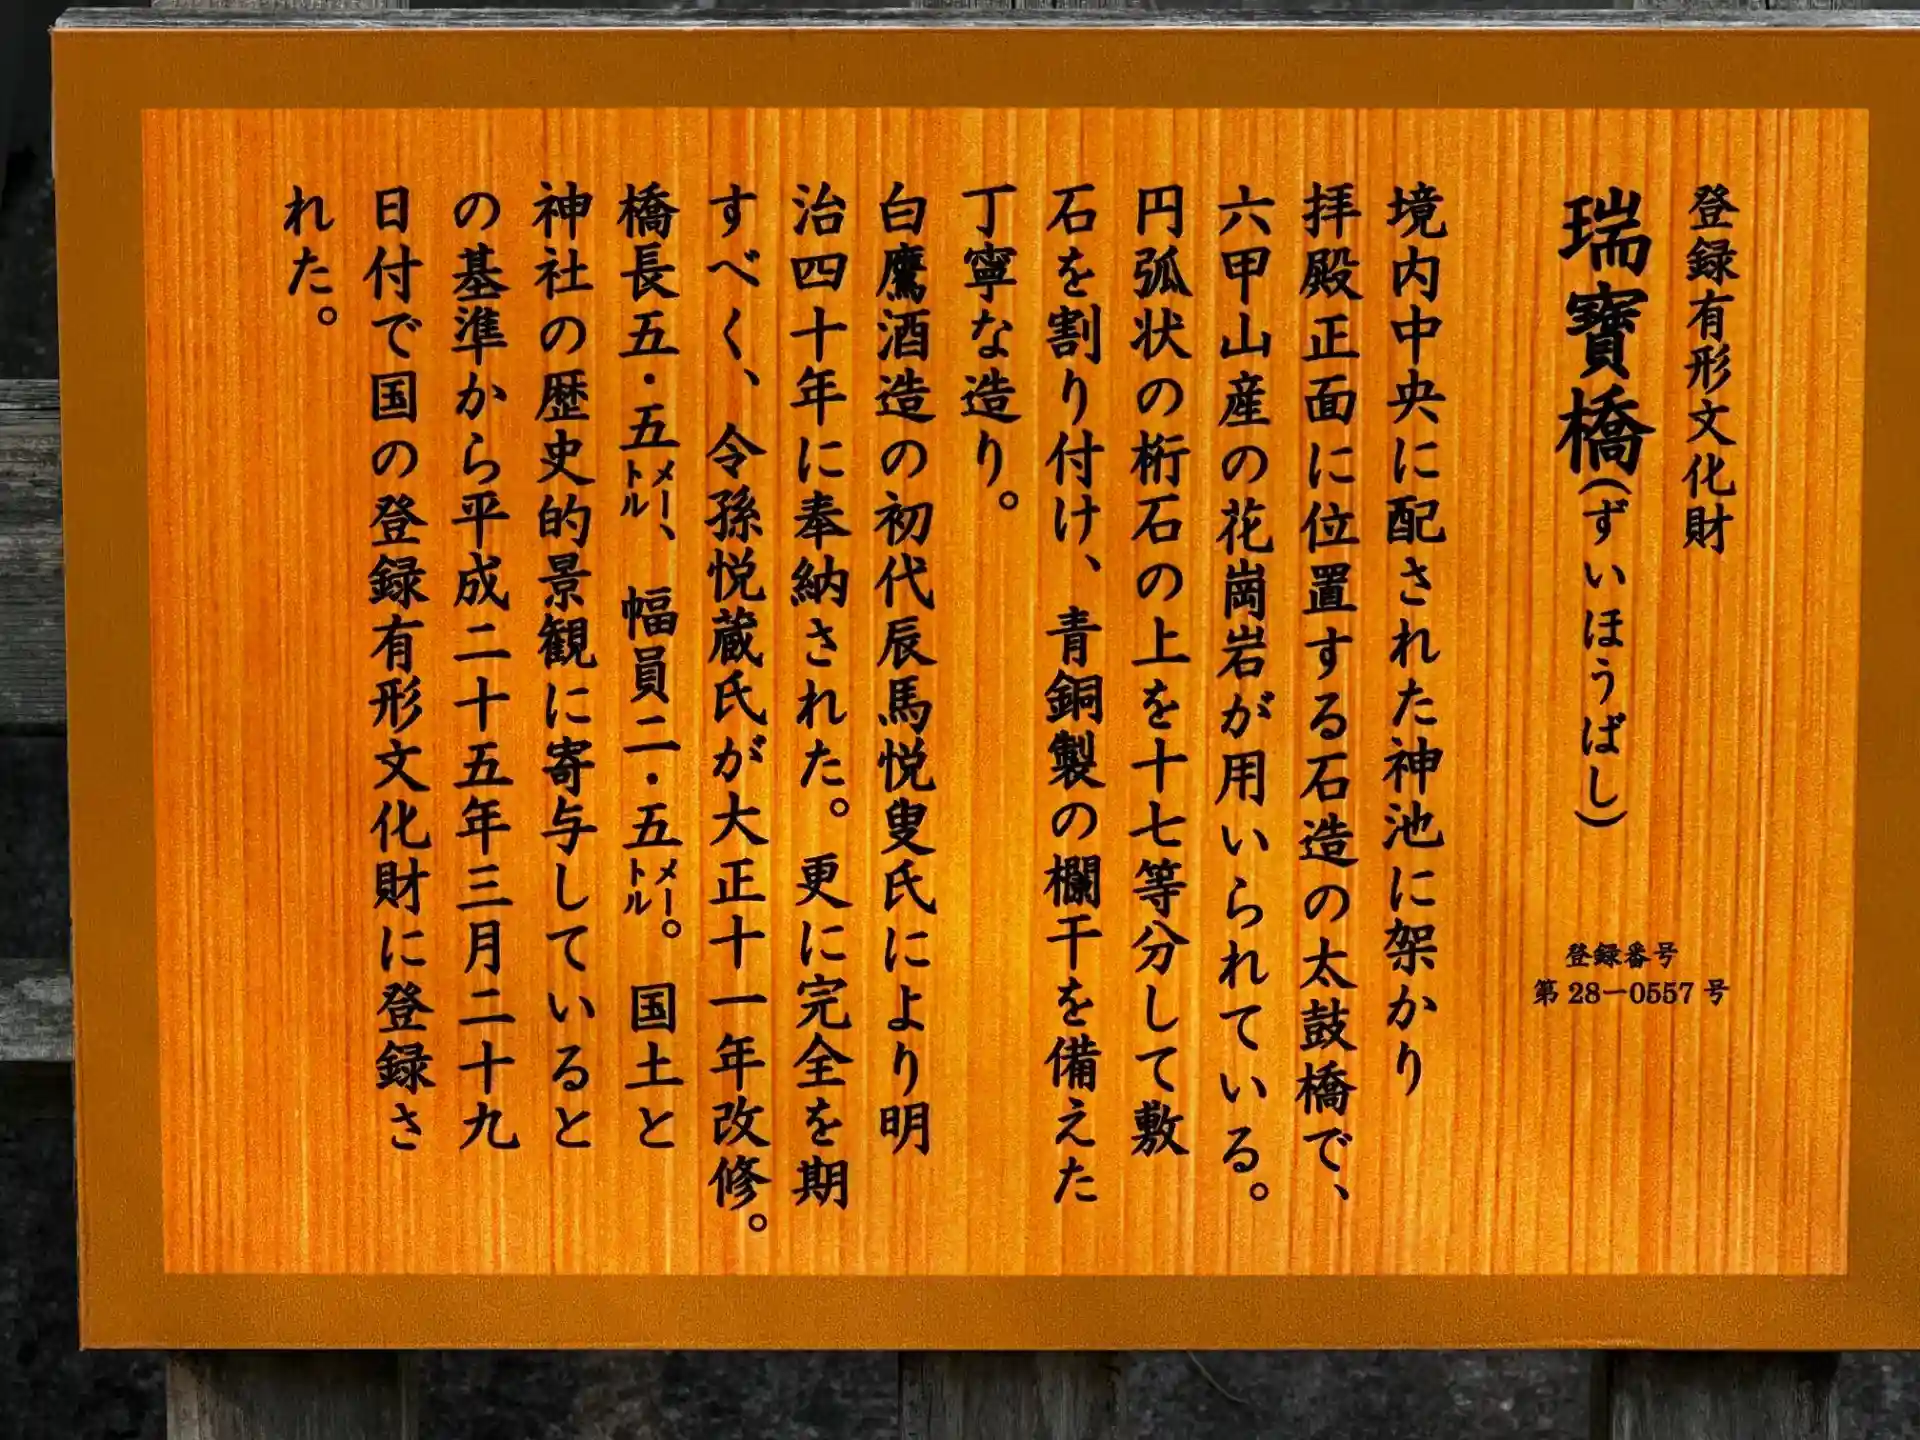 登録有形文化財
瑞寳橋(ずいほうばし)
登録番号
第28ー0557号
境内中央に配された神池に架かり
拝殿正面に位置する石造の太鼓橋で、
六甲山産の花崗岩が用いられている。
円弧状の桁石の上を十七等分して敷
石を割り付け、青銅製の欄干を備えた
丁寧な造り。
白鷹酒造の初代辰馬悦叟氏により明
治四十年に奉納された。更に完全を期
すべく、令孫悦蔵氏が大正十一年改修。
橋長五・五㍍、幅員二・五㍍。国土と
神社の歴史的景観に寄与していると
の基準から平成二十五年三月二十九
日付で国の登録有形文化財に登録さ
れた。